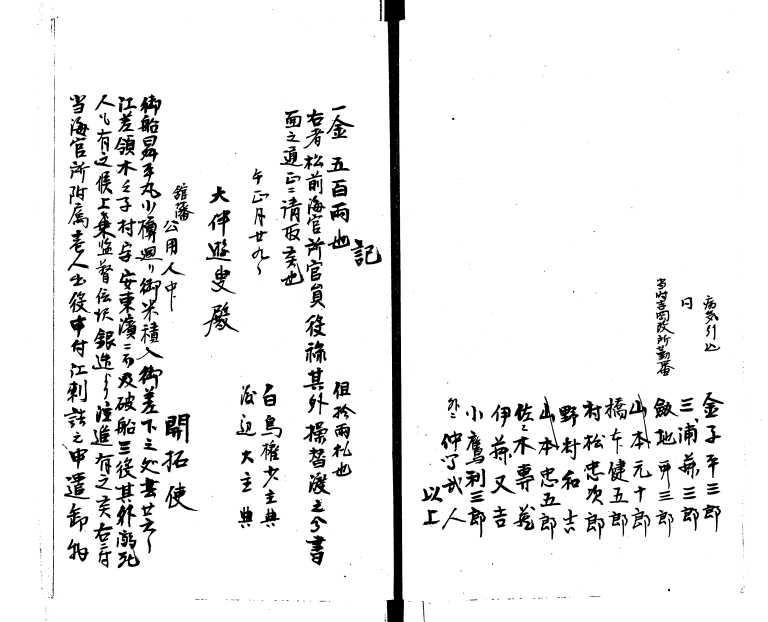 病気引込
金子平三郎
同
三浦兼三郎
当時吉岡改所勤番
敬地平三郎
山本元十郎
橋本健五郎
村松忠次郎
野村和吉
山本忠五郎
佐々木専蔵
伊藤又吉
小鷹利三郎
外ニ仲丁弐人
以上
記
一金五百両也 但拾両札也
右者松前海官所官員役禄其外操替渡之分書
面之通正ニ請取候也
午正月廿九日
白鳥権少主典
渡辺大主典
大伴遊叟殿
館藩
公用人中
開拓使
御船昇平丸小樽廻リ御米積入御差下之処去廿六日
江差領木之子村字安東濱ニ而及破船三役其外溺死
人も有之候上乗監督伝次銀造より注進有之候右ニ付
当海官所附属壱人出役申付江刺詰之申遣